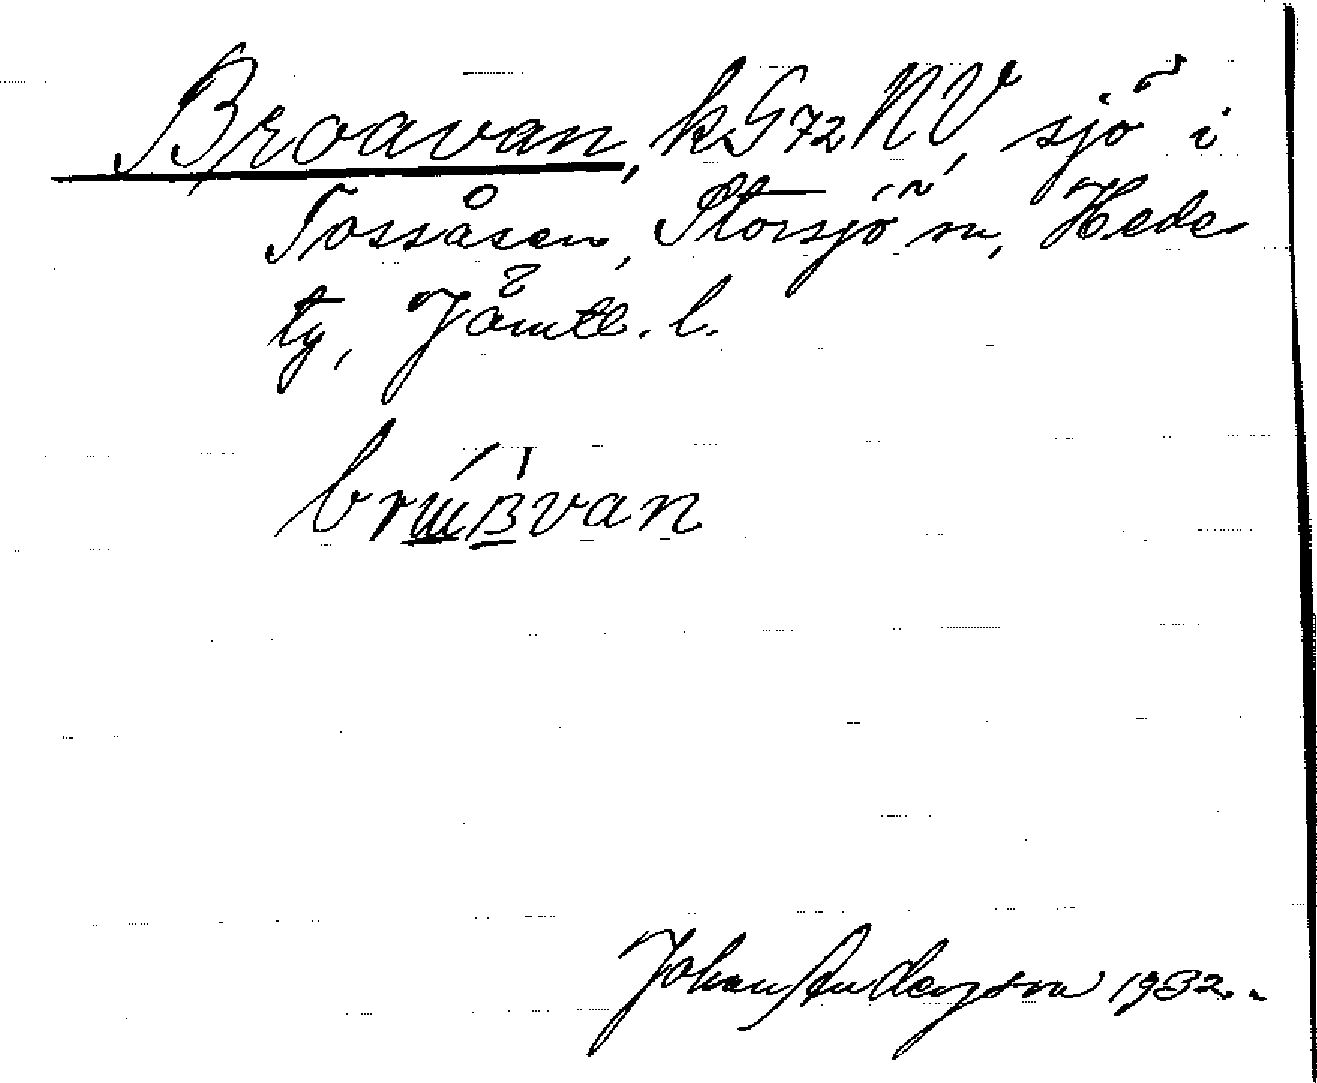 Broavan, kG72NV, sjö i
Tossåsen, Storsjö sn, Hede
tg, Jämtl. l.
Johan Anderson 1932.